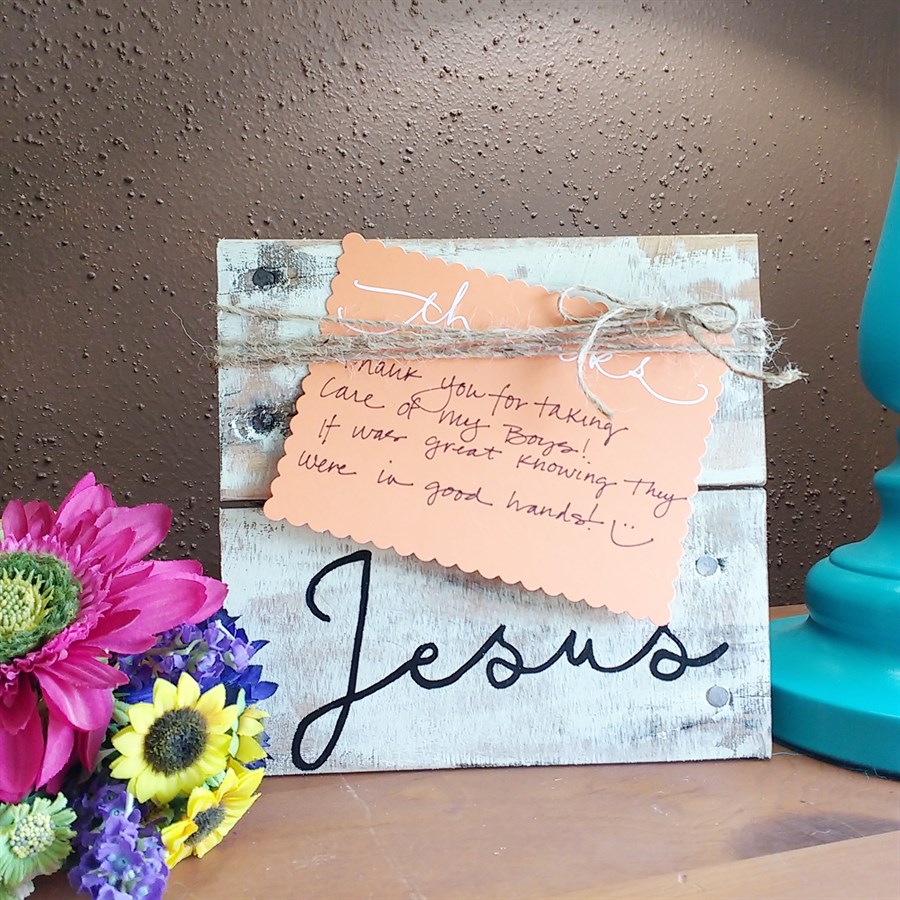 th ks
Thank you for taking
care of my Boys!
It was great knowing they
were in good hands!
Jesus